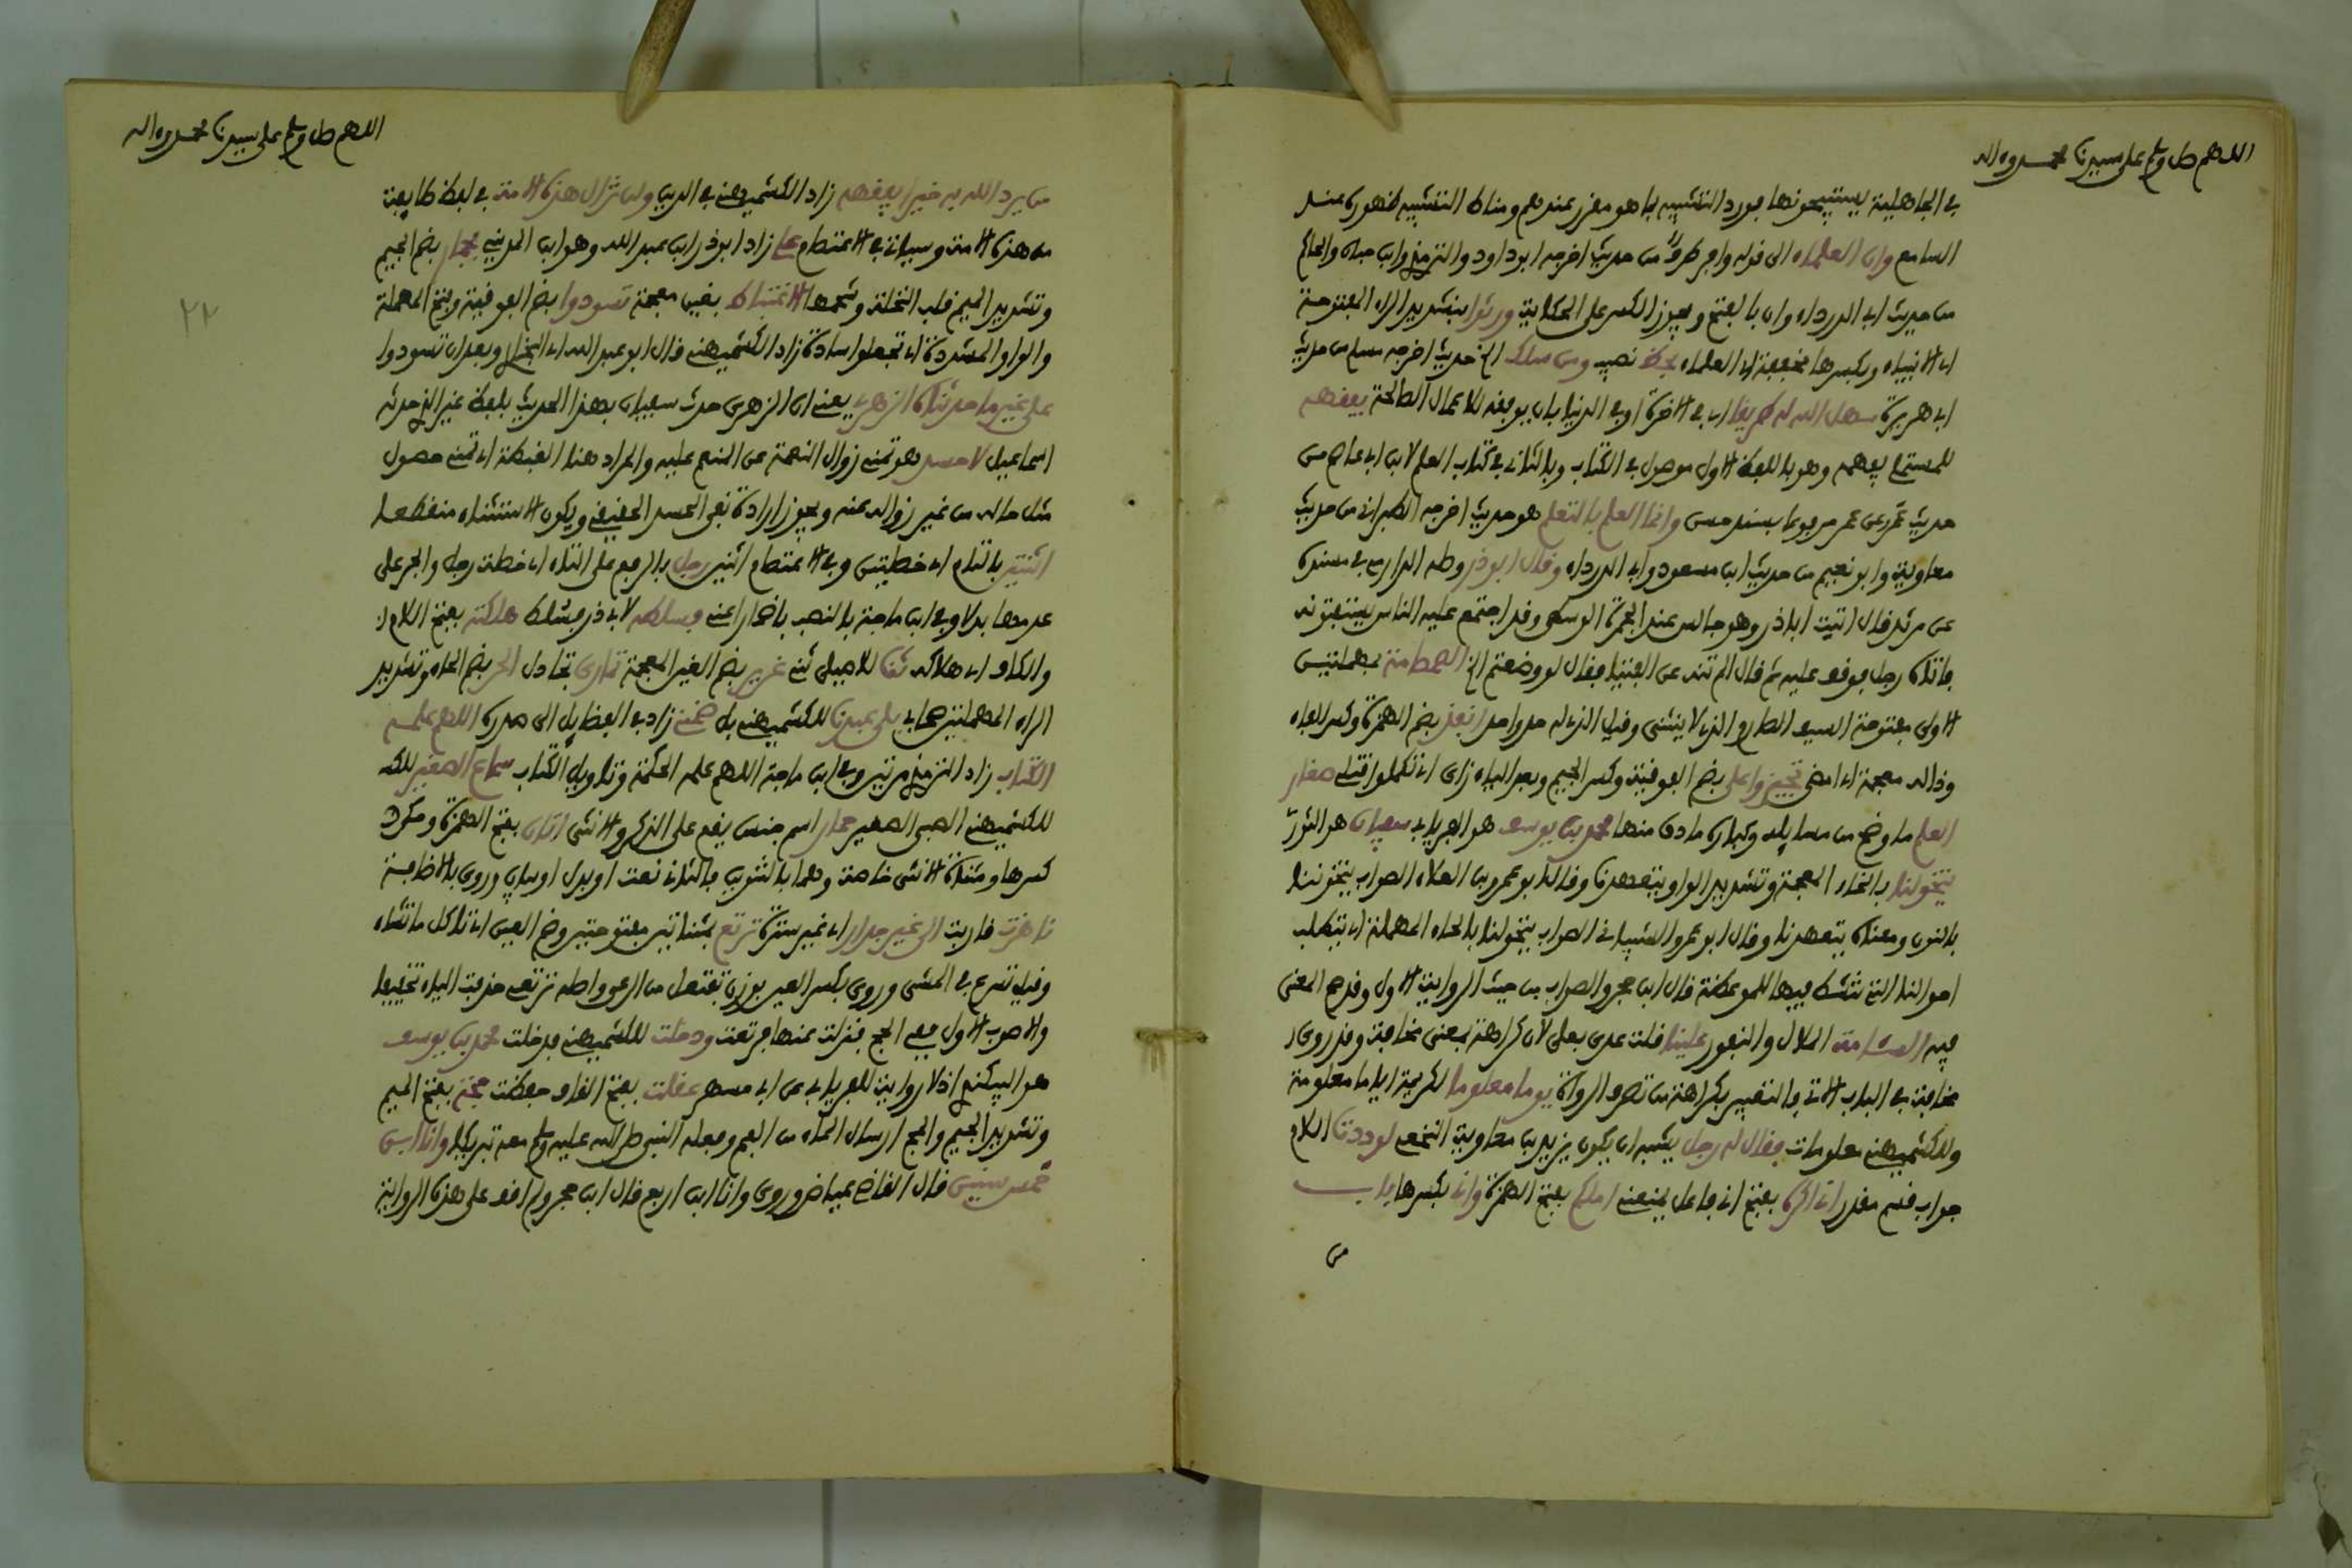 اللهم صل وسلم على سيدنا محمد وءاله
في الجاهلية يستبيحونها فورد التشبيه بما هو مقرر عندهم ومناط التشبيه ظهوره عند
السامع وان العلماء الى قوله وافر طرف من حديث اخرجه ابو داود والترمذي وابن حبان والحاكم
من حديث ابي الدرداء وان بالفتح ويجوز الكسر على الحكاية ورثوا بتشديد الراء المفتوحة
اي الانبياء وبكسرها مخففة اي العلماء بحظ نصيب ومن سلك الخ حديث اخرجه مسلم من حديث
ابي هريرة سهل الله له طريقا اي في الاخرة او في الدنيا بان يوفقه للاعمال الصالحة يفقهه
للمستملي يفهمه وهو باللفظ الاول موصول في الكتاب وبالثاني في كتاب العلم لابن ابي عاصم من
حديث عمر عن عمر مرفوعا بسند حسن وانما العلم بالتعلم هو حديث اخرجه الطبراني من حديث
معاوية وابو نعيم من حديث ابن مسعود وابي الدرداء وقال ابو ذر وصله الدارمي في مسنده
عن مرثد قال اتيت ابا ذر وهو جالس عند الجمرة الوسطى وقد اجتمع عليه الناس يستفتونه
فاتاه رجل فوقف عليه ثم قال الم تنه عن الفتيا فقال لو وضعتم الخ الصمصامة بمهملتين
الاولى مفتوحة السيف الصارم الذي لا ينثني وقيل الذي له حد واحد انفذ بضم الهمزة وكسر الفاء
وذال معجمة اي امضي تجيزوا علي بضم الفوقية وكسر الجيم وبعد الياء زاي اي تكملوا قتلي صغار
العلم ما وضح من مسايله وكباره ما دق منها محمد بن يوسف هو الفريابي سفيان هو الثوري
يتخولنا بالخاء المعجمة وتشديد الواو يتعهدنا وقال ابو عمرو بن العلاء الصواب يتخوننا
بالنون ومعناه يتعهدنا وقال ابو عمرو الشيباني الصواب يتحولنا بالحاء المهملة اي يتطلب
احوالنا التي ننشط فيها للموعظة قال ابن حجر والصواب من حيث الرواية الاول وقد صح المعنى
فيه السئامة الملال والنفور علينا قلت عدي بعلى لان كراهة بمعنى مخافة وقد روي
مخافة في الباب الاتي فالتعبير بكراهة من تصرف الرواة يوما معلوما لكريمة اياما معلومة
وللكشميهني معلومات فقال له رجل يشبه ان يكون يزيد بن معاوية النخعي لوددت اللام
جواب قسم مقدر اني اكره بفتح اني فاعل يمنعني املكم بفتح الهمزة واني بكسرها باب
من
اللهم صل وسلم على سيدنا محمد وءاله
٢٢
من يرد الله به خيرا يفقهه زاد الكشميهني في الدين ولن تزال هذه الامة في لفظ طايفة
من هذه الامة وسياتي في الاعتصام علي زاد ابو ذر ابن عبد الله وهو ابن المديني بجمار بضم الجيم
وتشديد الميم قلب النخلة وشحمها الاغتباط بغين معجمة تسودوا بضم الفوقية وفتح المهملة
والواو المشددة اي تجعلوا سادة زاد الكشميهني قال ابو عبد الله اي البخاري وبعد ان تسودوا
على غير ما حدثناه الزهري يعني ان الزهري حدث سفيان بهذا الحديث بلفظ غير الذي حدثه
اسماعيل لا حسد هو تمني زوال النعمة عن المنعم عليه والمراد هنا الغبطة اي تمني حصول
مثل ماله من غير زواله عنه ويجوز ارادة نفي الحسد الحقيقي ويكون الاستثناء منقطعا
اثنتين بالتاء اي خصلتين وفي الاعتصام اثنين رجل بالرفع على التاء اي خصلة رجل والجر على
عدمها بدلا وفي ابن ماجة بالنصب باضمار اعني فسلطه لابي ذر فسلط هلكته بفتح اللام
والكاف اي هلاكه ثنا للاصيلي ثني غرير بضم الغين المعجمة تمارى تجادل الحر بضم الحاء وتشديد
الراء المهملتين صحابي بلى عبدنا للكشميهني بل ضمني زاد في الفضايل الى صدره اللهم علمه
الكتاب زاد الترمذي مرتين وفي ابن ماجة اللهم علمه الحكمة وتاويل الكتاب سماع الصغير
للكشميهني الصبي الصغير حمار اسم جنس يقع على الذكر والانثى اتان بفتح الهمزة وحكي
كسرها ومثناة الانثى خاصة وهما بالتنوين فالثاني نعت او بدل او بيان وروي بالاضافة
ناهزت قاربت الى غير جدار اي غير سترة ترتع بمثناتين مفتوحتين وضم العين اي تاكل ما تشاء
وقيل تسرع في المشي وروي بكسر العين بوزن تفتعل من الرعي واصله ترتعي حذفت الياء تخفيفا
والاصوب الاول ففي الحج فنزلت عنها فرتعت ودخلت للكشميهني فدخلت محمد بن يوسف
هو البيكندي اذ لا رواية للفريابي عن ابي مسهر عقلت بفتح القاف حفظت مجة بفتح الميم
وتشديد الجيم والمج ارسال الماء من الفم وفعله النبي صلى الله عليه وسلم معه تبريكا وانا ابن
خمس سنين قال القاضي عياض وروي وانا ابن اربع قال ابن حجر ولم اقف على هذه الرواية